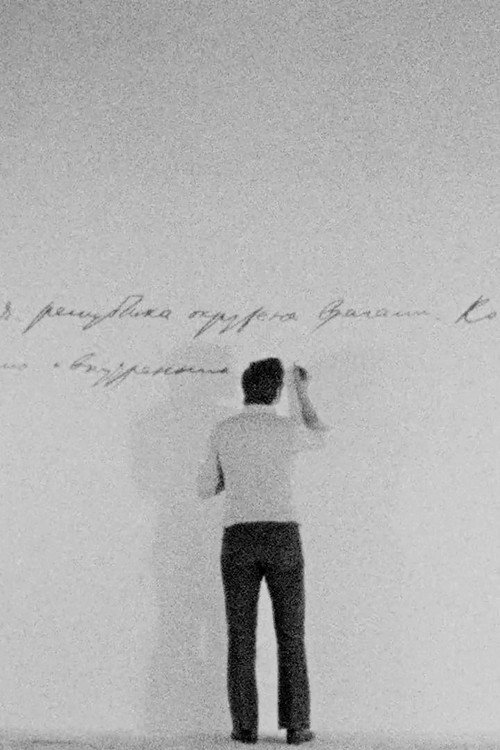 республика окружена врагами. Ко
внутренние